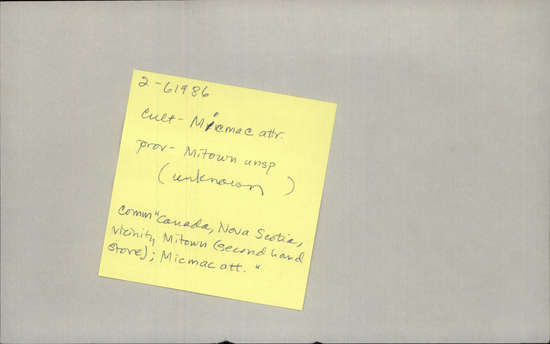 2-61986
cult- Micmac attr.
prov- Mitown unsp
(unknown)
comm "Canada, Nova Scotia,
vicinity Mitown (second hand
store); Micmac att."